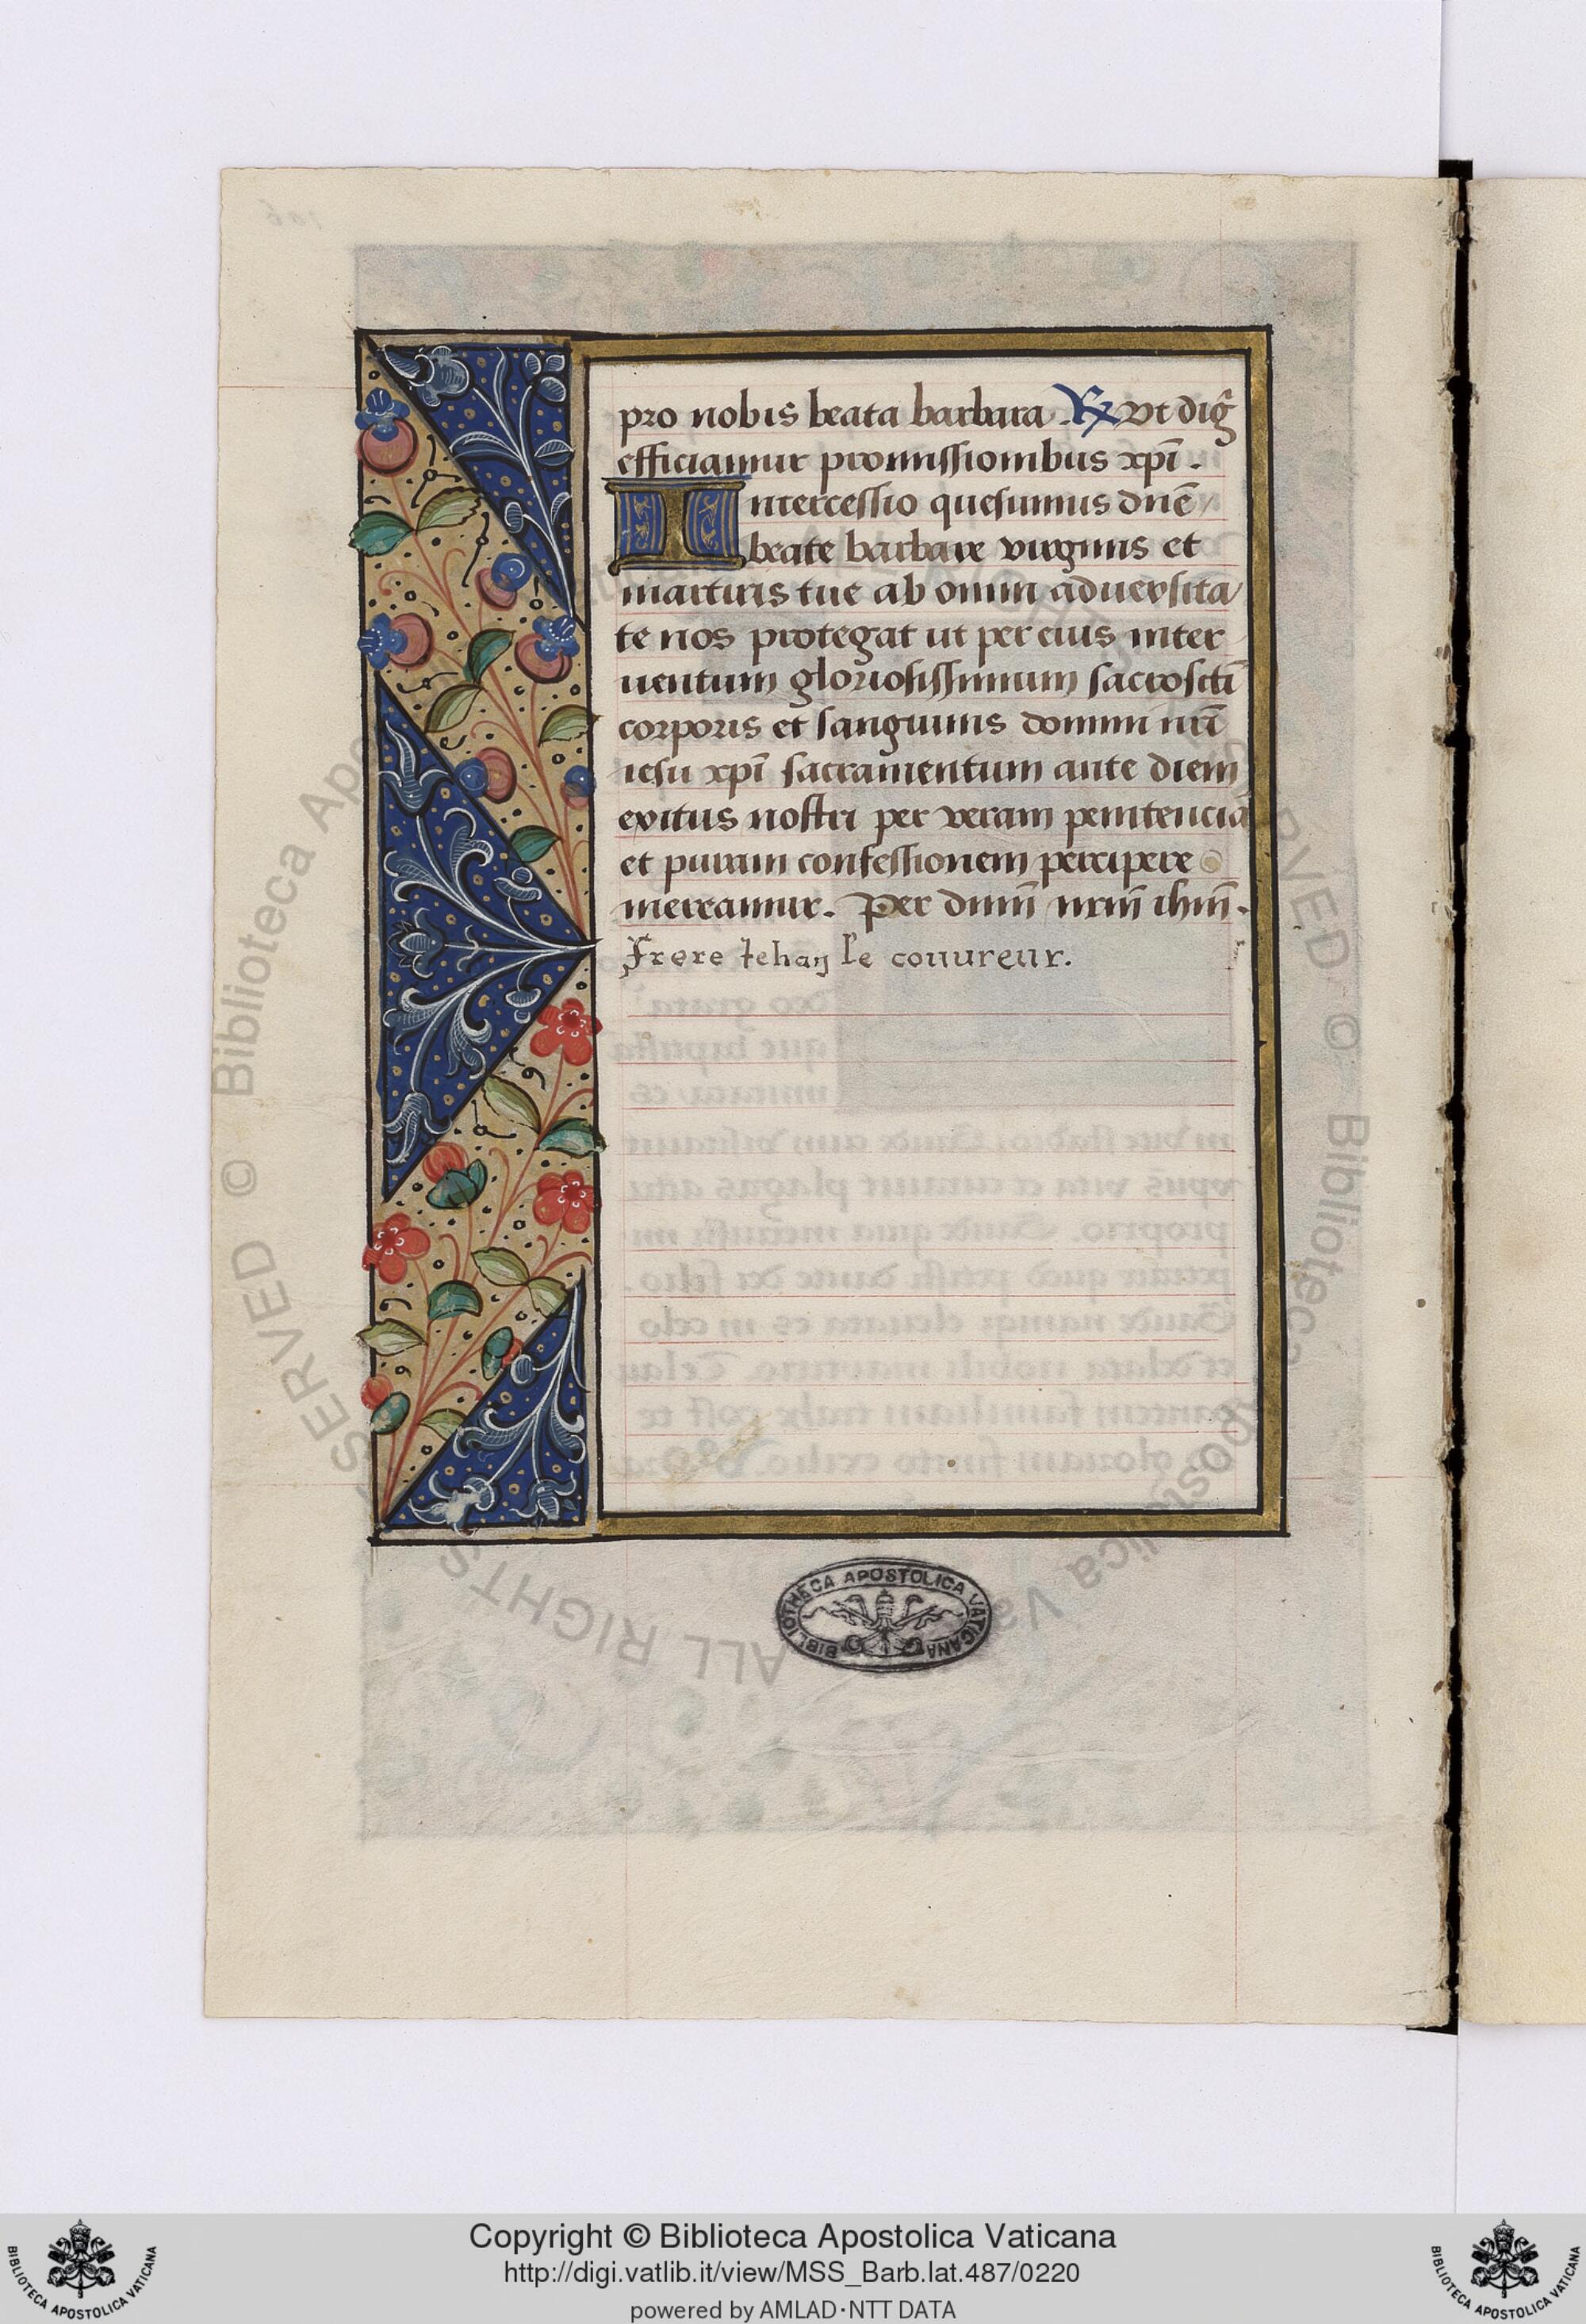 pro nobis beata barbara. ℟ Vt dig̃
efficiamur promissionibus xp̄i.
Intercessio quesumus dn̄e
beate barbare virginis et
martiris tue ab omni aduersita
te nos protegat ut per eius inter
uentum gloriosissimum sacrosct̄i
corporis et sanguinis domini nr̄i
iesu xp̄i sacramentum ante diem
exitus nostri per veram penitenciā
et puram confessionem percipere
mereamur. Per dn̄m nr̄m ihm̄.
Frere Jehan le couureur.
BIBLIOTHECA APOSTOLICA VATICANA
Copyright © Biblioteca Apostolica Vaticana
http://digi.vatlib.it/view/MSS_Barb.lat.487/0220
powered by AMLAD·NTT DATA
BIBLIOTECA APOSTOLICA VATICANA
BIBLIOTECA APOSTOLICA VATICANA